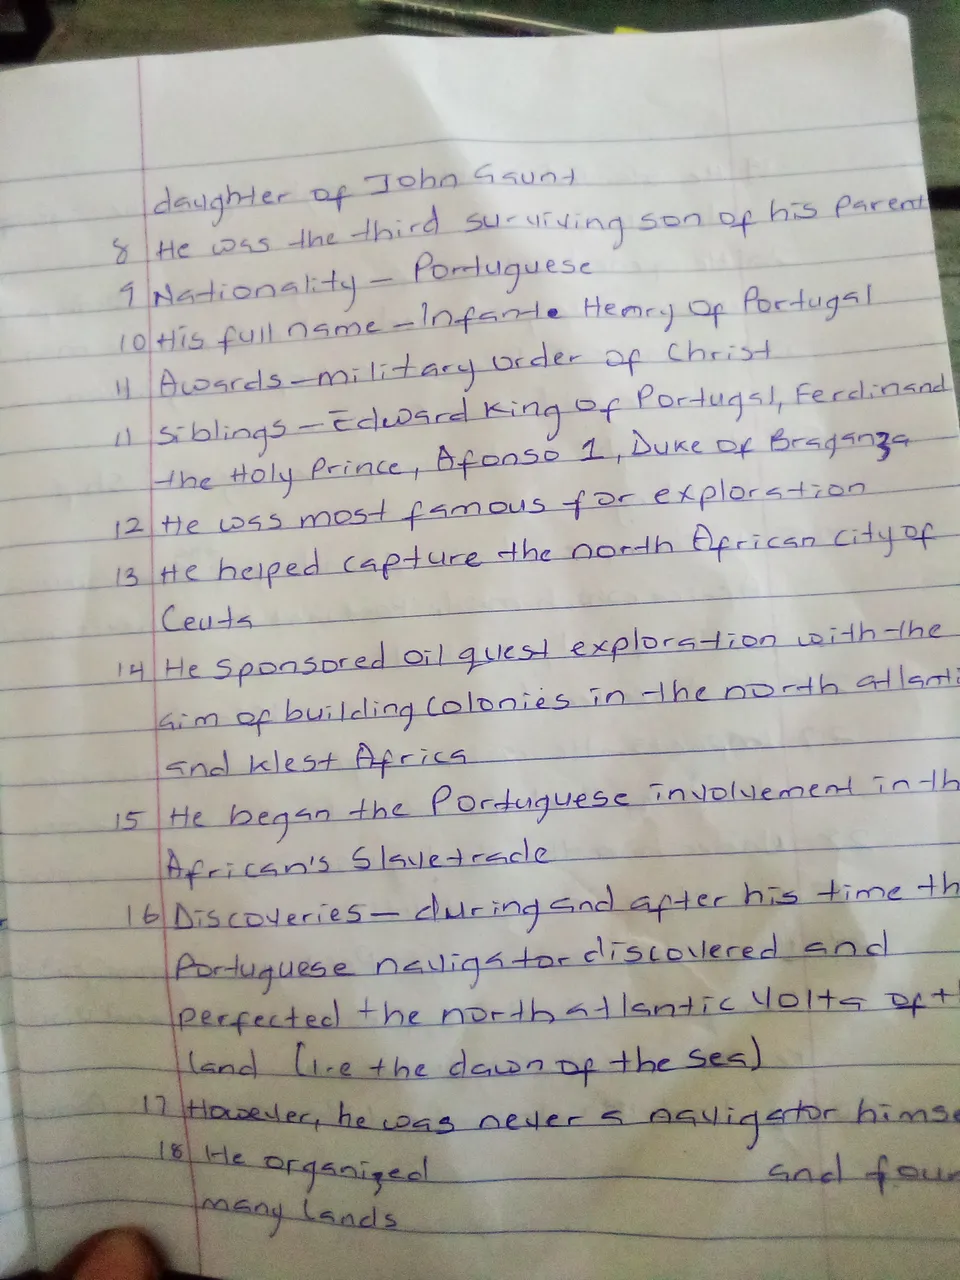 daughter of John Gaunt
8 He was the third surviving son of his Parent
9 Nationality - Portuguese
10 His full name - Infante Henry of Portugal
11 Awards - military order of Christ
11 Siblings - Edward King of Portugal, Ferdinand
the Holy Prince, Afonso 1, Duke of Braganza
12 He was most famous for exploration
13 He helped capture the north African city of
Ceuta
14 He sponsored oil quest exploration with the
aim of building Colonies in the north atlanti
and West Africa
15 He began the Portuguese involvement in th
African's Slave trade
16 Discoveries - during and after his time th
Portuguese navigator discovered and
perfected the north atlantic Volta of t
land (i.e the dawn of the sea)
17 However, he was never a navigator himse
18 He organized and foun
many lands